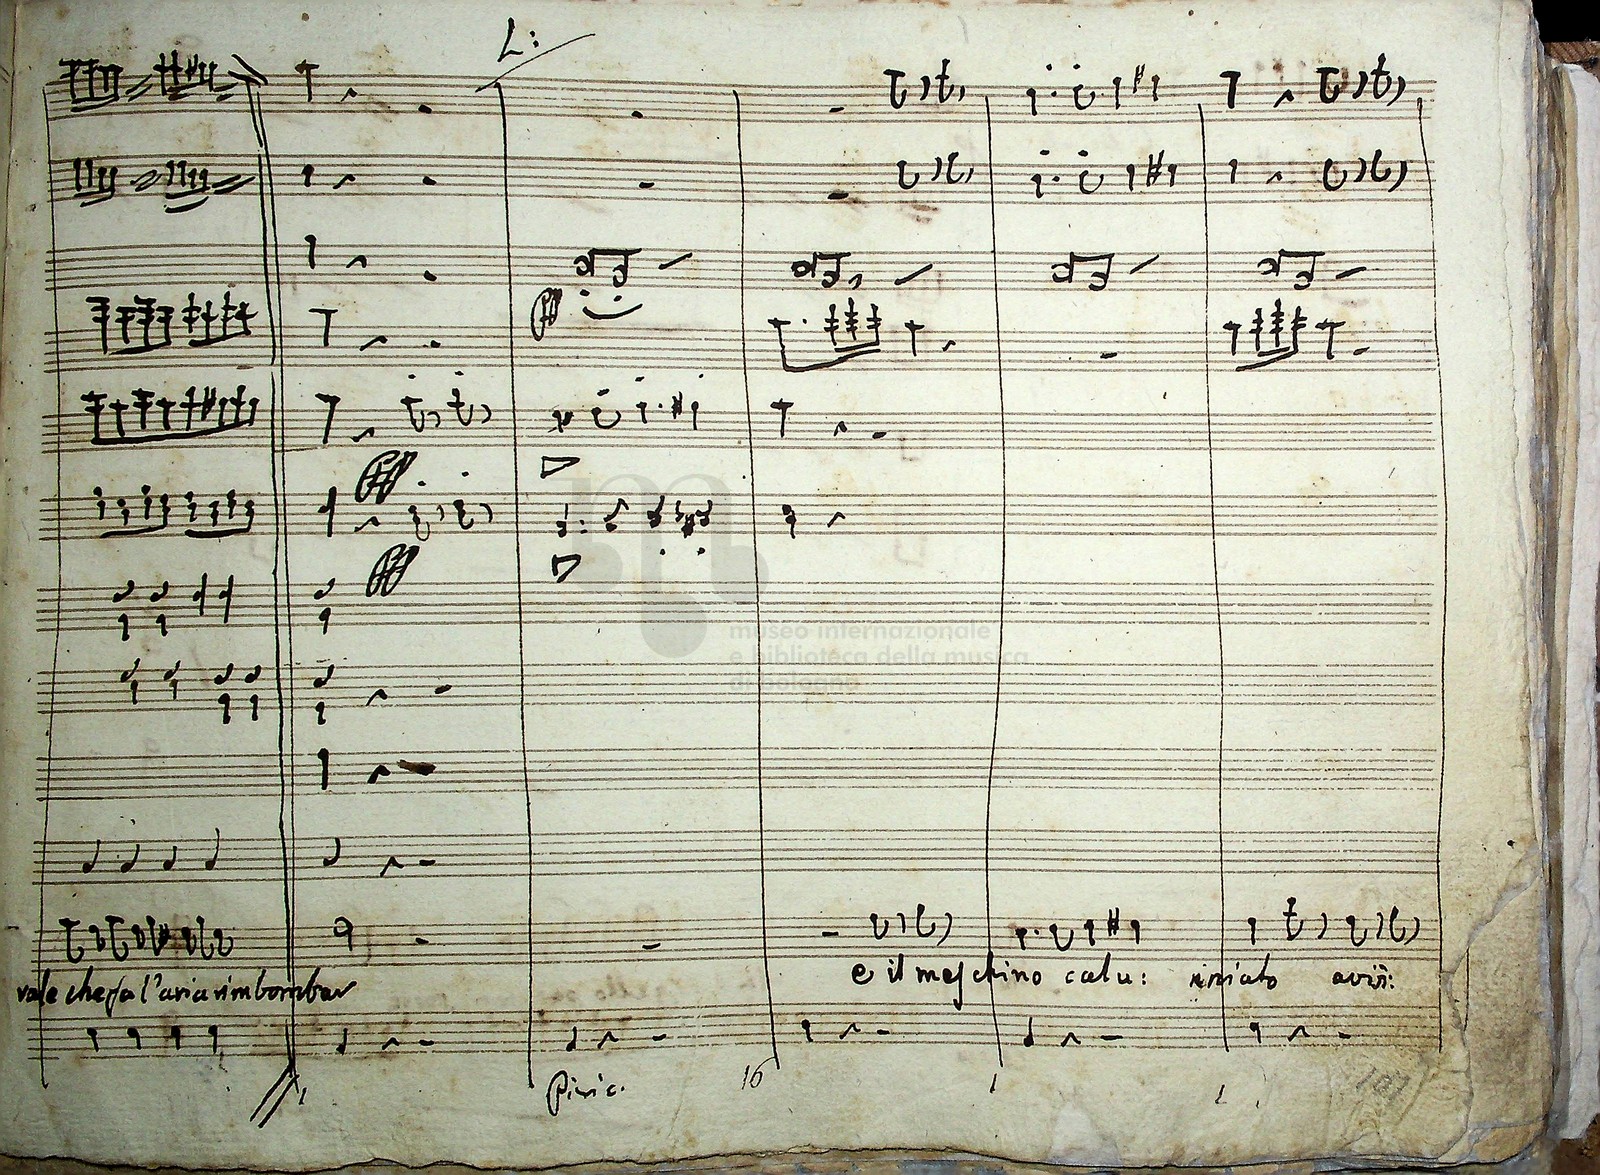 L:
museo internazionale
e biblioteca della musica
di bologna
e il meschino calu: niato avvi:
vale che fa l'aria rimbombar
Pizic.
16
1
1